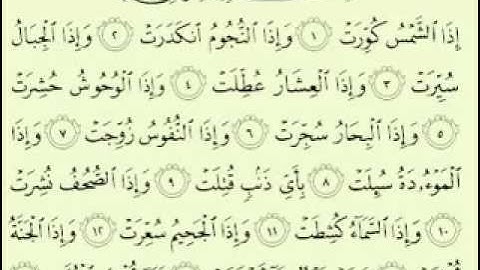 إِذَا ٱلشَّمْسُ كُوِّرَتْ ١ وَإِذَا ٱلنُّجُومُ ٱنكَدَرَتْ ٢ وَإِذَا ٱلْجِبَالُ
سُيِّرَتْ ٣ وَإِذَا ٱلْعِشَارُ عُطِّلَتْ ٤ وَإِذَا ٱلْوُحُوشُ حُشِرَتْ
٥ وَإِذَا ٱلْبِحَارُ سُجِّرَتْ ٦ وَإِذَا ٱلنُّفُوسُ زُوِّجَتْ ٧ وَإِذَا
ٱلْمَوْءُۥدَةُ سُئِلَتْ ٨ بِأَيِّ ذَنۢبٍ قُتِلَتْ ٩ وَإِذَا ٱلصُّحُفُ نُشِرَتْ
١٠ وَإِذَا ٱلسَّمَآءُ كُشِطَتْ ١١ وَإِذَا ٱلْجَحِيمُ سُعِّرَتْ ١٢ وَإِذَا ٱلْجَنَّةُ